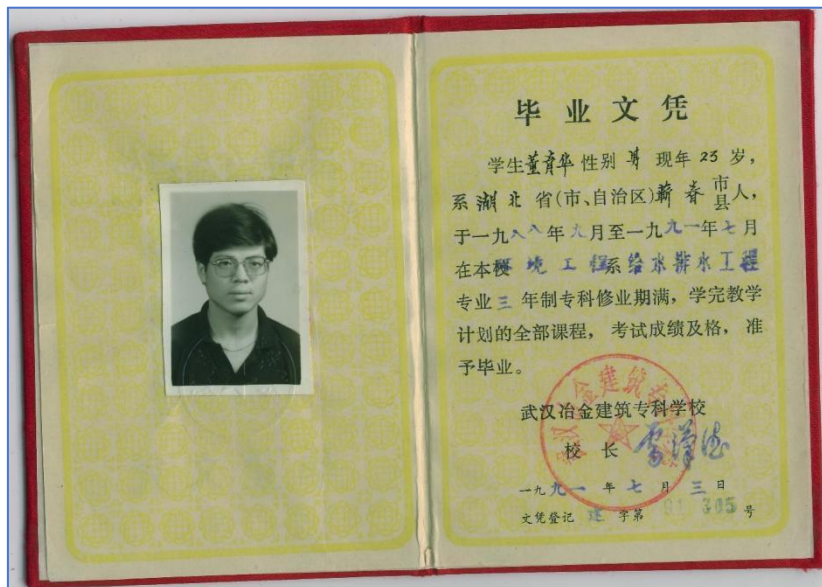 毕业文凭
学生董育华性别男现年23岁，
系湖北省(市、自治区)蕲春市县人，
于一九八八年九月至一九九一年七月
在本校环境工程系给水排水工程
专业三年制专科修业期满，学完教学
计划的全部课程，考试成绩及格，准
予毕业。
武汉冶金建筑专科学校
校长
一九九一年七月三日
文凭登记 字第91 305号